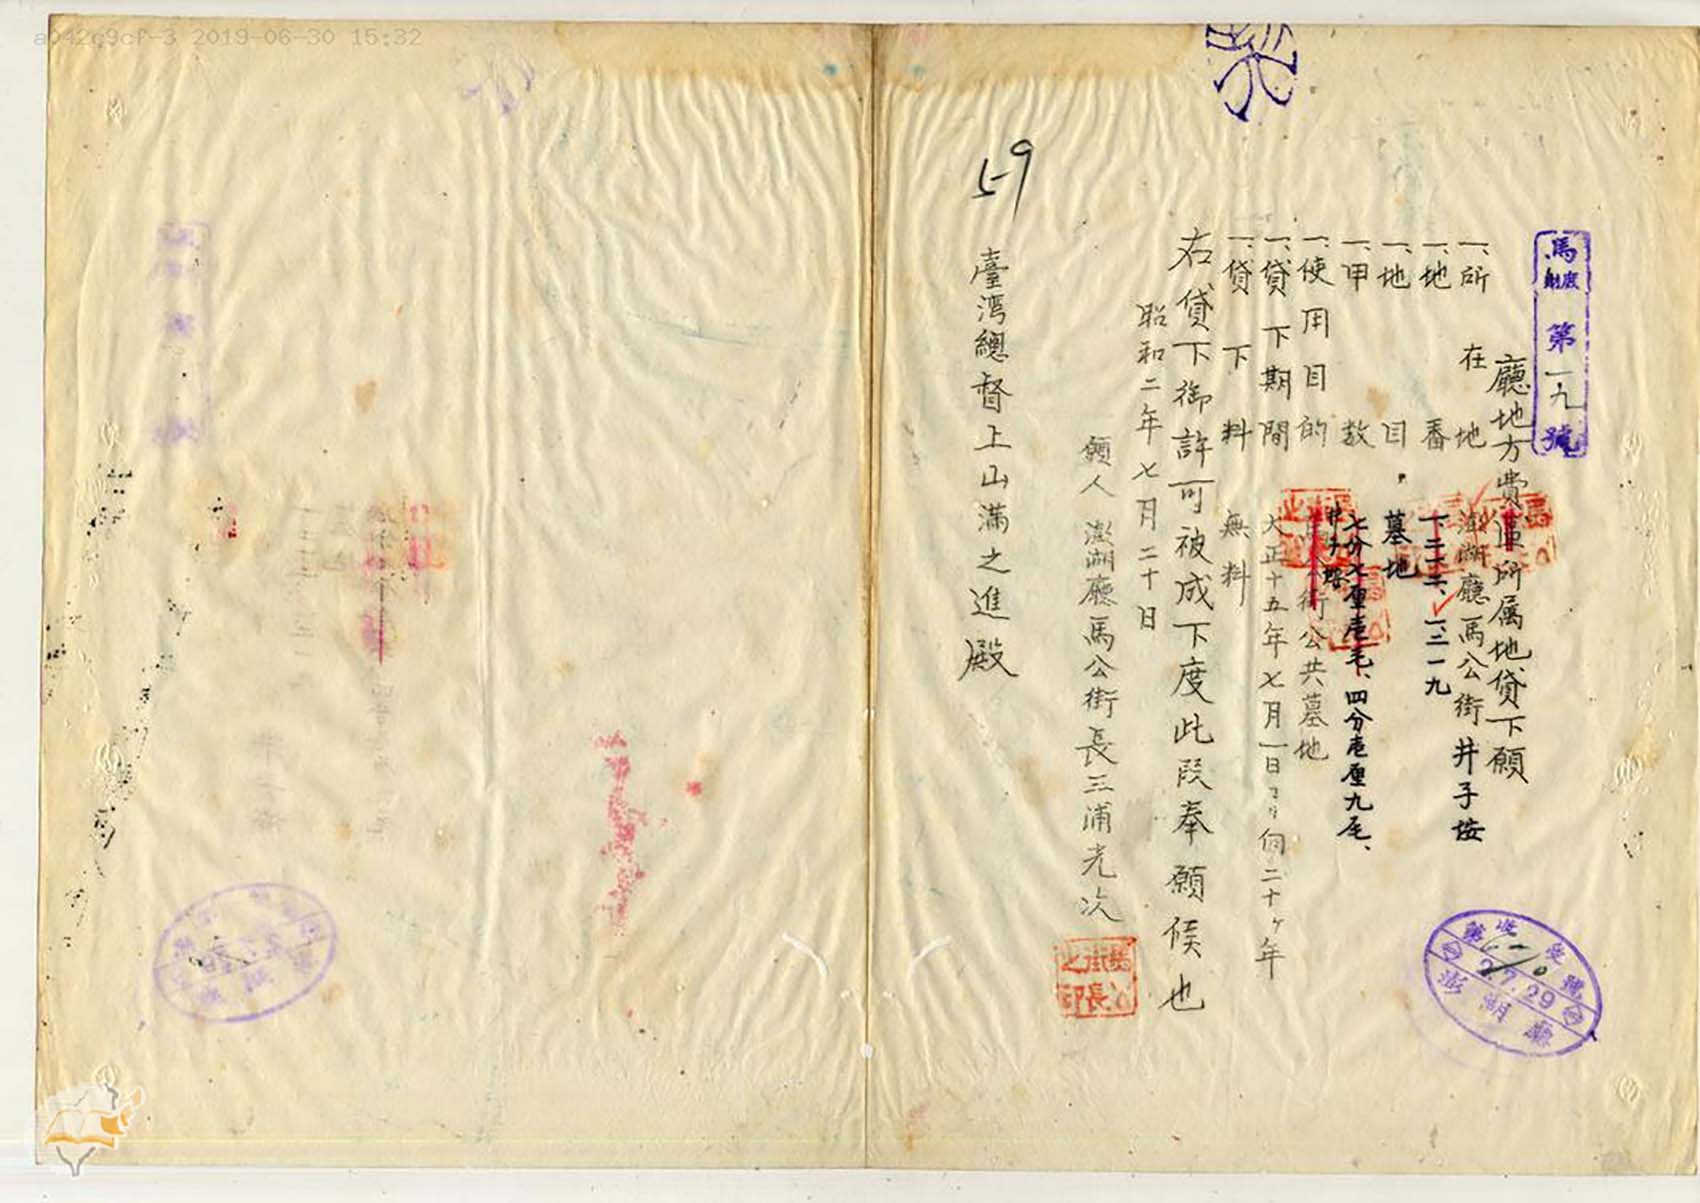 a042c9cf-3 2019-06-30 15:32
馬庶財 第一九號
廳地方費區所属地貸下願
一、所在地 澎湖廳馬公街井子垵
一、地番 一、三一九
一、地目 墓地
一、甲数 七分七厘壱毛、四分壱厘九毛、
一、使用目的 街公共墓地
一、貸下期間 大正十五年七月一日ヨリ向二十ヶ年
一、貸下料 無料
右貸下御許可被成下度此段奉願候也
昭和二年七月二十日
願人 澎湖廳馬公街長三浦光次
馬公街長之印
臺湾總督上山滿之進殿
59
2.7.29
澎湖廳